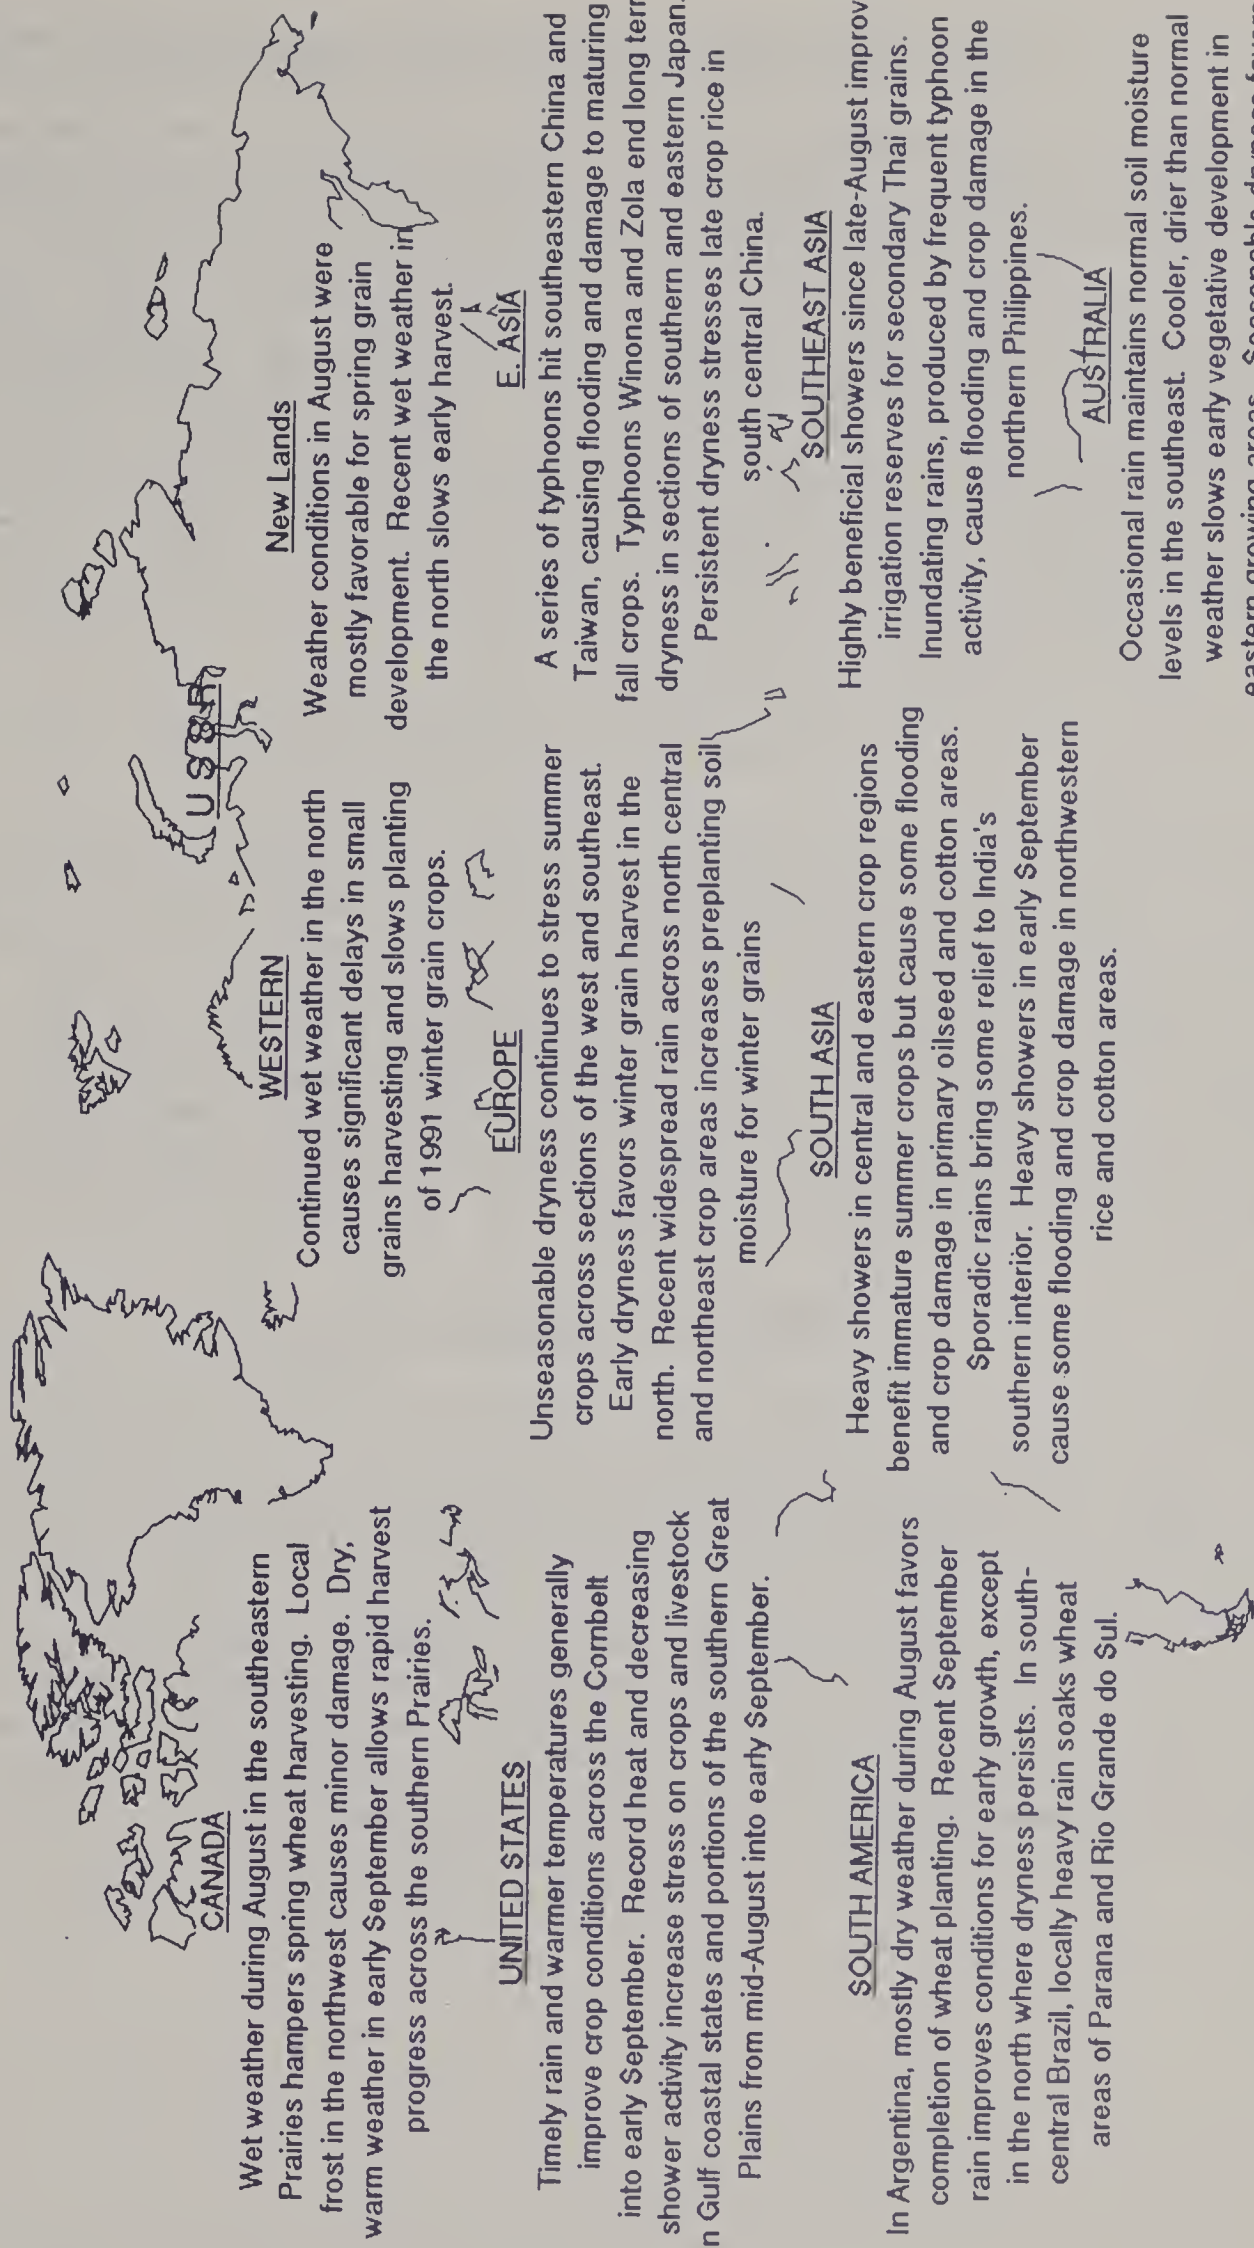 CANADA
Wet weather during August in the southeastern
Prairies hampers spring wheat harvesting. Local
frost in the northwest causes minor damage. Dry,
warm weather in early September allows rapid harvest
progress across the southern Prairies.
UNITED STATES
Timely rain and warmer temperatures generally
improve crop conditions across the Cornbelt
into early September. Record heat and decreasing
shower activity increase stress on crops and livestock
n Gulf coastal states and portions of the southern Great
Plains from mid-August into early September.
SOUTH AMERICA
In Argentina, mostly dry weather during August favors
completion of wheat planting. Recent September
rain improves conditions for early growth, except
in the north where dryness persists. In south-
central Brazil, locally heavy rain soaks wheat
areas of Parana and Rio Grande do Sul.
USSR
WESTERN
Continued wet weather in the north
causes significant delays in small
grains harvesting and slows planting
of 1991 winter grain crops.
EUROPE
Unseasonable dryness continues to stress summer
crops across sections of the west and southeast.
Early dryness favors winter grain harvest in the
north. Recent widespread rain across north central
and northeast crop areas increases preplanting soil
moisture for winter grains
SOUTH ASIA
Heavy showers in central and eastern crop regions
benefit immature summer crops but cause some flooding
and crop damage in primary oilseed and cotton areas.
Sporadic rains bring some relief to India's
southern interior. Heavy showers in early September
cause some flooding and crop damage in northwestern
rice and cotton areas.
New Lands
Weather conditions in August were
mostly favorable for spring grain
development. Recent wet weather in
the north slows early harvest.
E. ASIA
A series of typhoons hit southeastern China and
Taiwan, causing flooding and damage to maturing
fall crops. Typhoons Winona and Zola end long
dryness in sections of southern and eastern Japan.
Persistent dryness stresses late crop rice in
south central China.
SOUTHEAST ASIA
Highly beneficial showers since late-August improv
irrigation reserves for secondary Thai grains.
Inundating rains, produced by frequent typhoon
activity, cause flooding and crop damage in the
northern Philippines.
AUSTRALIA
Occasional rain maintains normal soil moisture
levels in the southeast. Cooler, drier than normal
weather slows early vegetative development in
eastern growing areas.